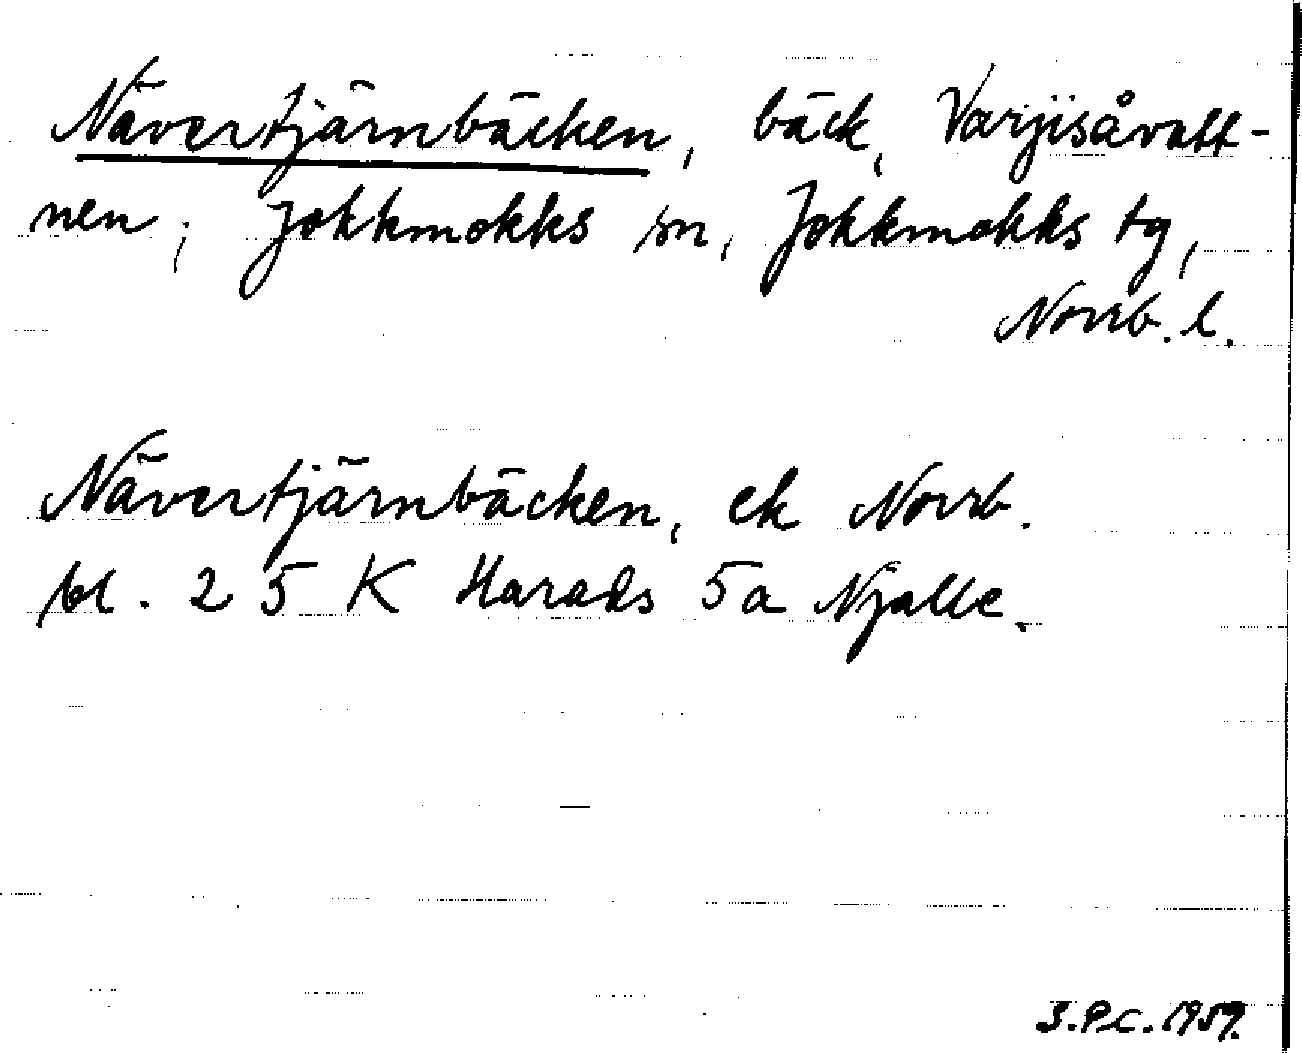 Nävertjärnbäcken, bäck, Varjisåvatt-
nen, Jokkmokks sn, Jokkmokks tg,
Norrb. l.
Nävertjärnbäcken, ek Norrb.
bl. 25 K Harads 5a Njalle.
S.P.C. 1959.